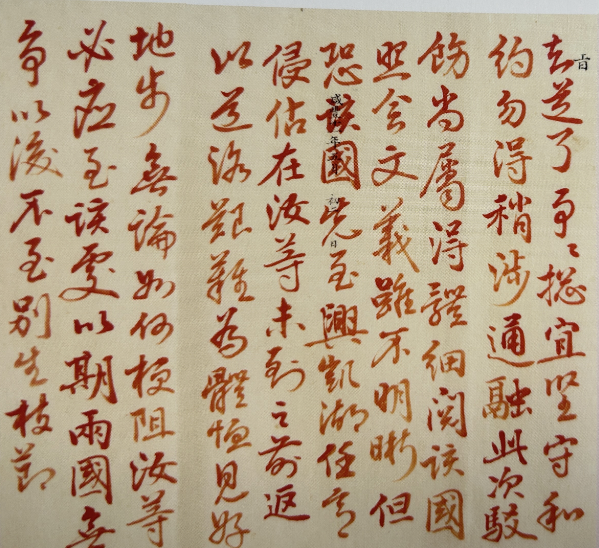 旨
知道了事〻總宜堅守和
約勿得稍涉通融此次駁
飭尚屬得體細閱該國
照會文義雖不明晰但
恐該國先至興凱湖任意
侵佔在汝等未到之前返
以道路艱難為體恤見好
地步無論如何梗阻汝等
必應至該處以期兩國無
爭以後不至別生枝節